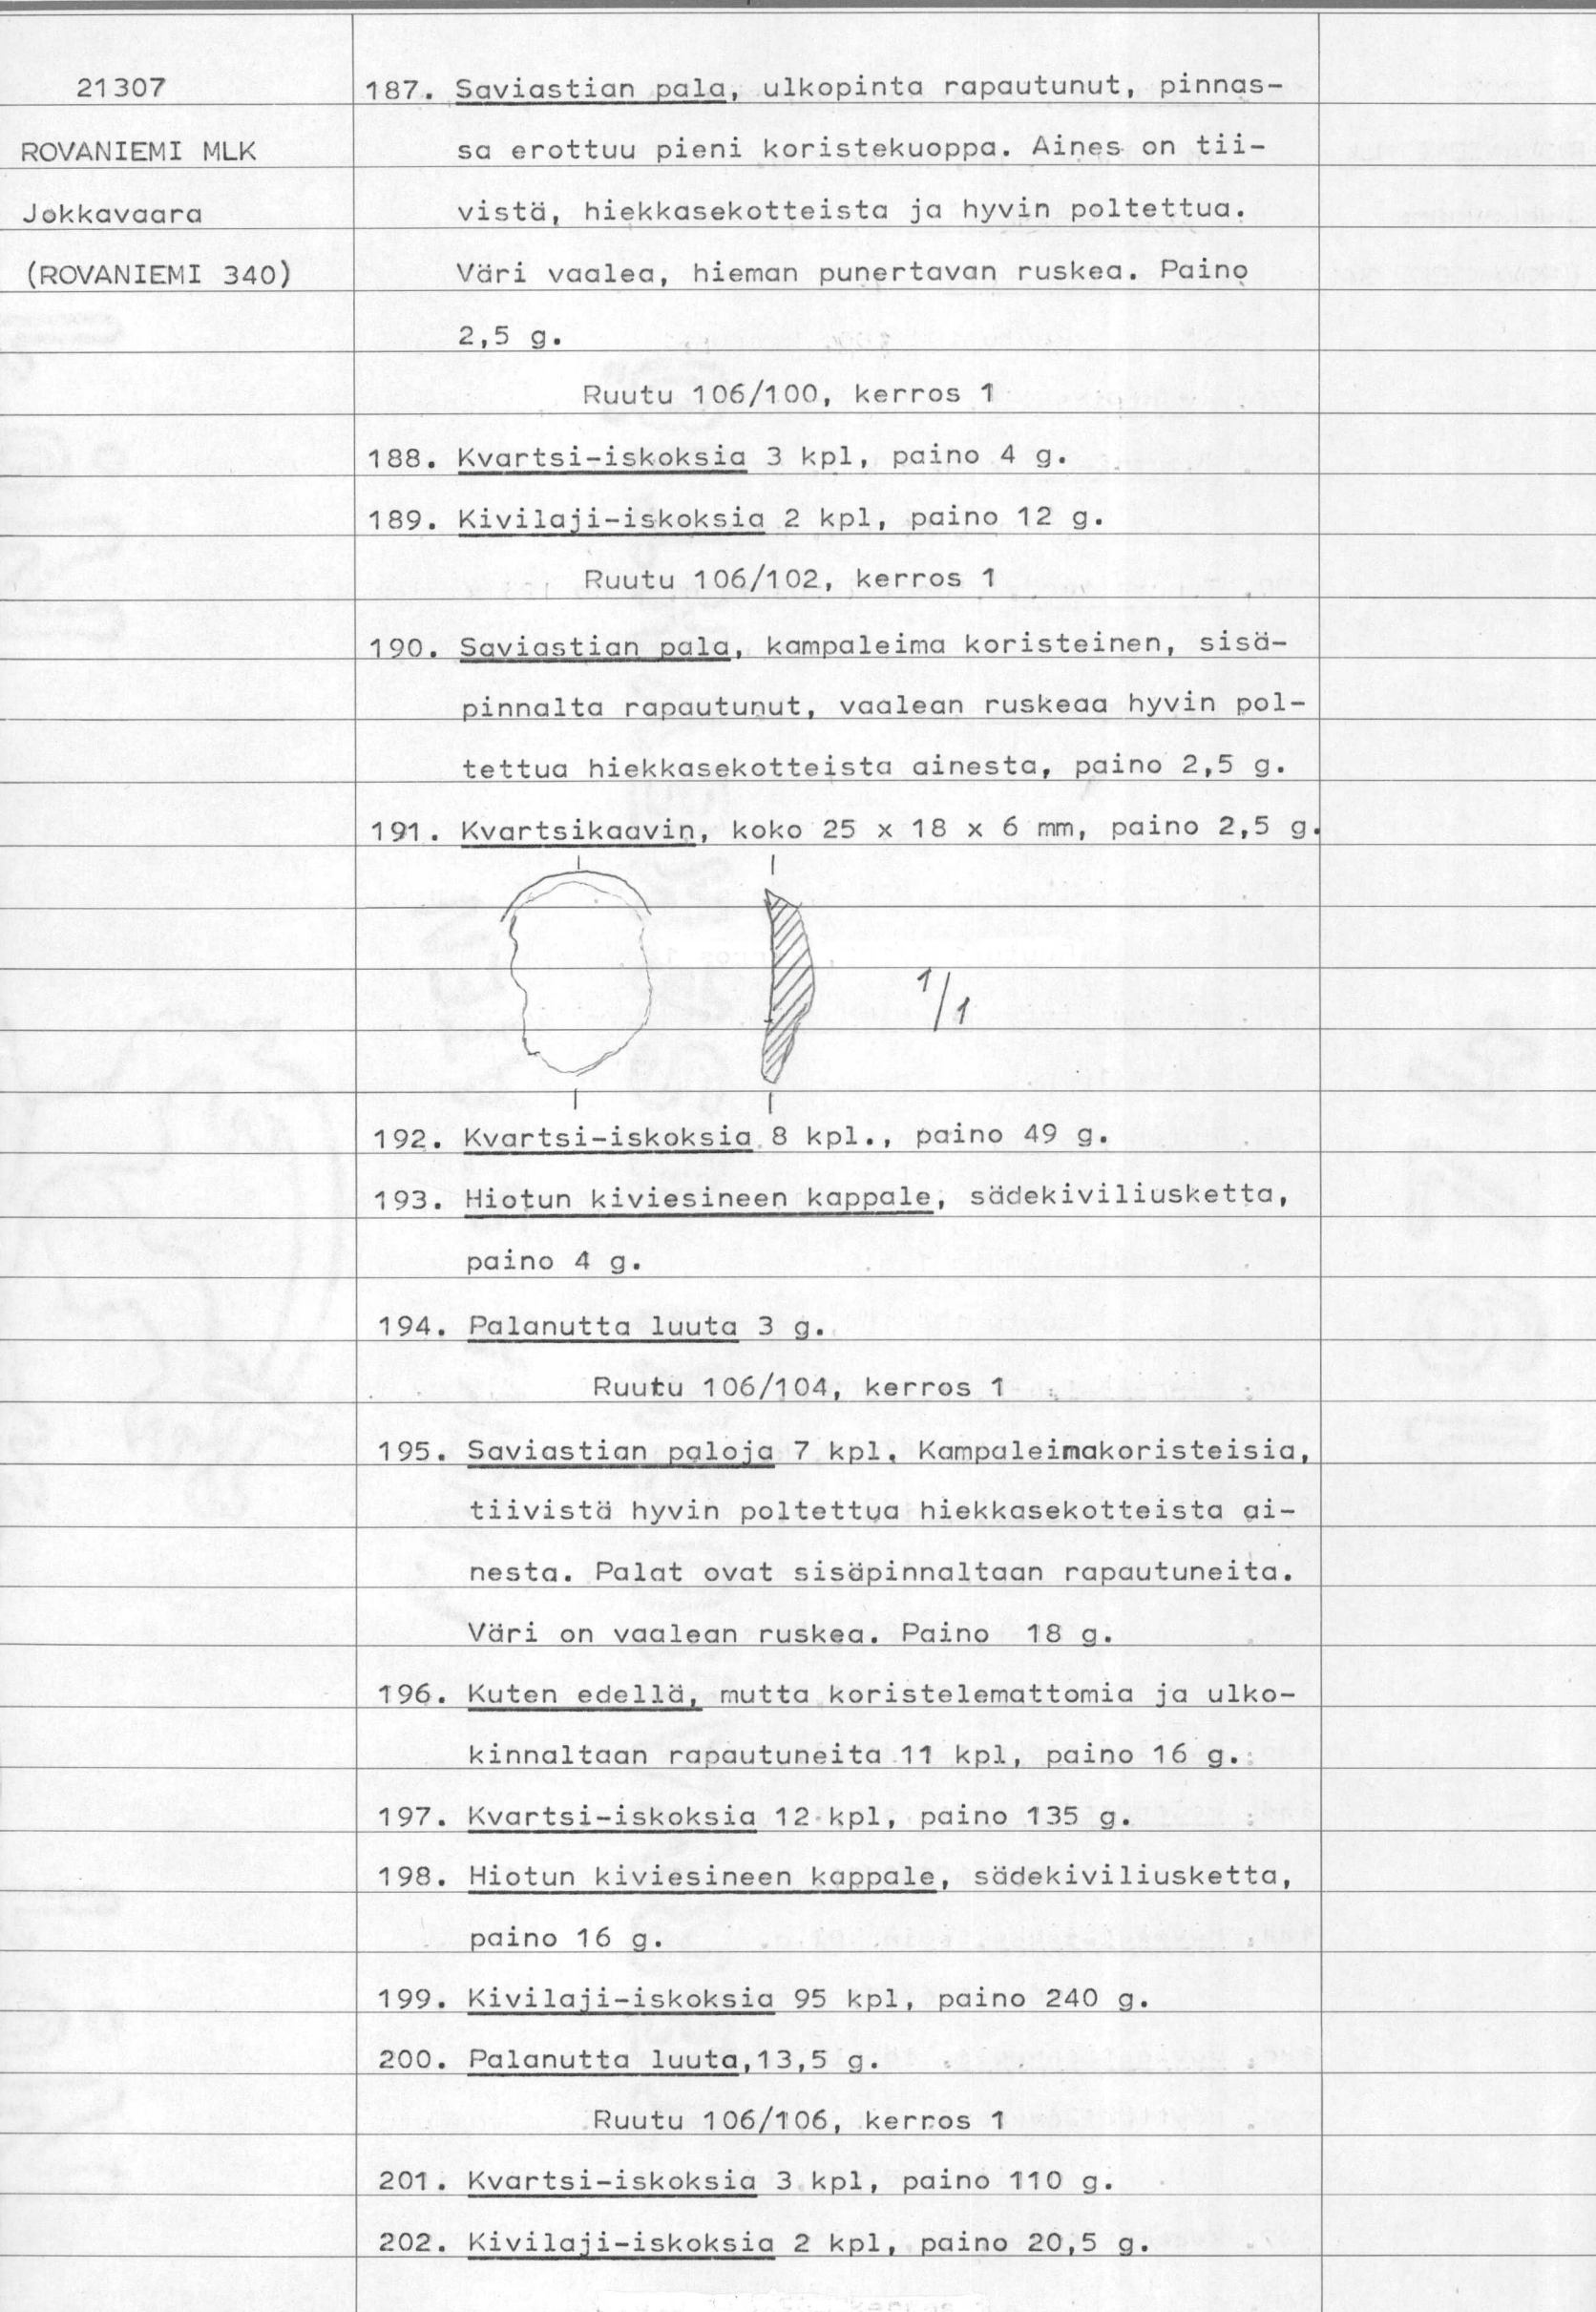 21307
ROVANIEMI MLK
Jokkavaara
(ROVANIEMI 340)
187. Saviastian pala, ulkopinta rapautunut, pinnas-
sa erottuu pieni koristekuoppa. Aines on tii-
vistä, hiekkasekotteista ja hyvin poltettua.
Väri vaalea, hieman punertavan ruskea. Paino
2,5 g.
Ruutu 106/100, kerros 1
188. Kvartsi-iskoksia 3 kpl, paino 4 g.
189. Kivilaji-iskoksia 2 kpl, paino 12 g.
Ruutu 106/102, kerros 1
190. Saviastian pala, kampaleima koristeinen, sisä-
pinnalta rapautunut, vaalean ruskeaa hyvin pol-
tettua hiekkasekotteista ainesta, paino 2,5 g.
191. Kvartsikaavin, koko 25 x 18 x 6 mm, paino 2,5 g.
1/1
192. Kvartsi-iskoksia 8 kpl., paino 49 g.
193. Hiotun kiviesineen kappale, sädekiviliusketta,
paino 4 g.
194. Palanutta luuta 3 g.
Ruutu 106/104, kerros 1
195. Saviastian paloja 7 kpl. Kampaleimakoristeisia,
tiivistä hyvin poltettua hiekkasekotteista ai-
nesta. Palat ovat sisäpinnaltaan rapautuneita.
Väri on vaalean ruskea. Paino 18 g.
196. Kuten edellä, mutta koristelemattomia ja ulko-
kinnaltaan rapautuneita 11 kpl, paino 16 g.
197. Kvartsi-iskoksia 12 kpl, paino 135 g.
198. Hiotun kiviesineen kappale, sädekiviliusketta,
paino 16 g.
199. Kivilaji-iskoksia 95 kpl, paino 240 g.
200. Palanutta luuta,13,5 g.
Ruutu 106/106, kerros 1
201. Kvartsi-iskoksia 3 kpl, paino 110 g.
202. Kivilaji-iskoksia 2 kpl, paino 20,5 g.